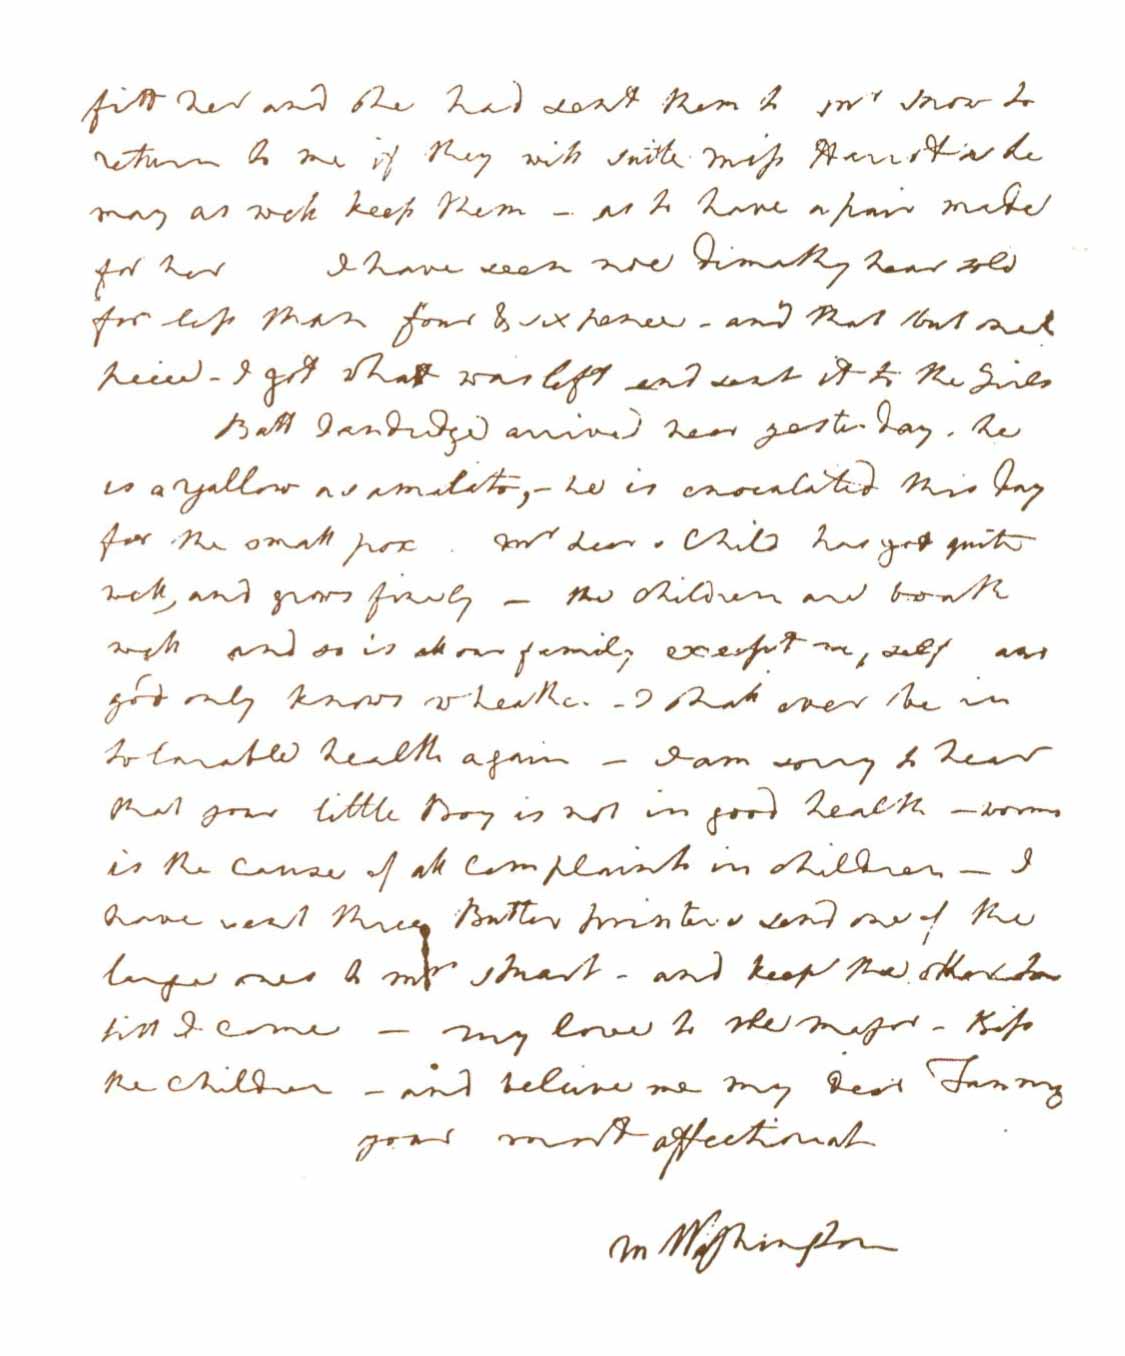 fitt her and she had sent them to mr snow to
return to me if they will suite miss Harriot she
may as well keep them – as to have a pair made
for her I have seen noe Dimathy hear sold
for less than four & six pence – and that but one
peice – I got what was left and sent it to the Girls
Batt Dandridge arrived hear yesterday. he
is a yallow as a mulato, – he is enoculated this day
for the small pox. Mr Lears Child has got quite
well, and grows finely – the children are boath
well and so is all our family except my self and
god only knows wheathe. – I shall ever be in
tolarable health again – I am sorry to hear
that your little Boy is not in good health – worms
is the cause of all complaints in children – I
have sent three Butter printers send one of the
large ones to mrs stuart – and keep the other
till I come – my love to the major – Kiss
the children – and beleive me my dear Fanny
your most affectionat
M Washington